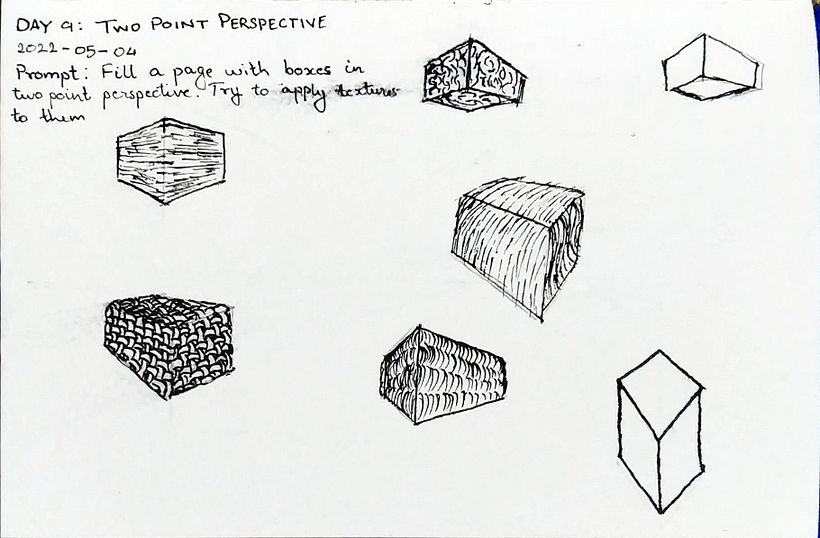 DAY 9: TWO POINT PERSPECTIVE
2022-05-04
Prompt: Fill a page with boxes in
two point perspective. Try to apply textures
to them